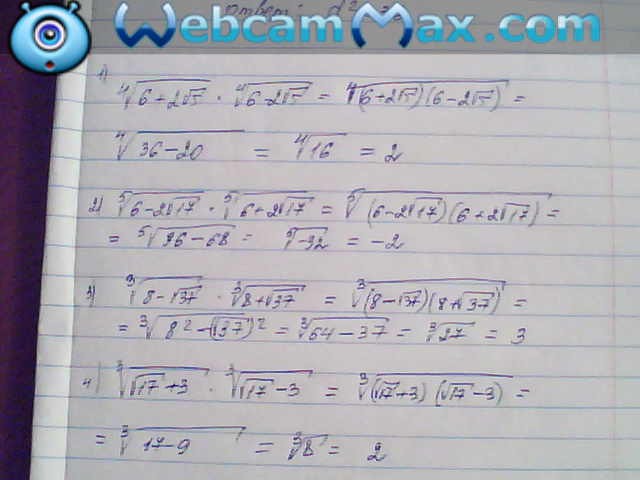 Ответ:
WebcamMax.com
1) ⁴√(6+2√5) · ⁴√(6-2√5) = ⁴√((6+2√5)(6-2√5)) =
⁴√(36-20) = ⁴√16 = 2
2) ⁵√(6-2√17) · ⁵√(6+2√17) = ⁵√((6-2√17)(6+2√17)) =
= ⁵√(36-68) = ⁵√-32 = -2
3) ³√(8-√37) · ³√(8+√37) = ³√((8-√37)(8+√37)) =
= ³√(8²-(√37)²) = ³√(64-37) = ³√27 = 3
4) ³√(√17+3) · ³√(√17-3) = ³√((√17+3)(√17-3)) =
= ³√(17-9) = ³√8 = 2